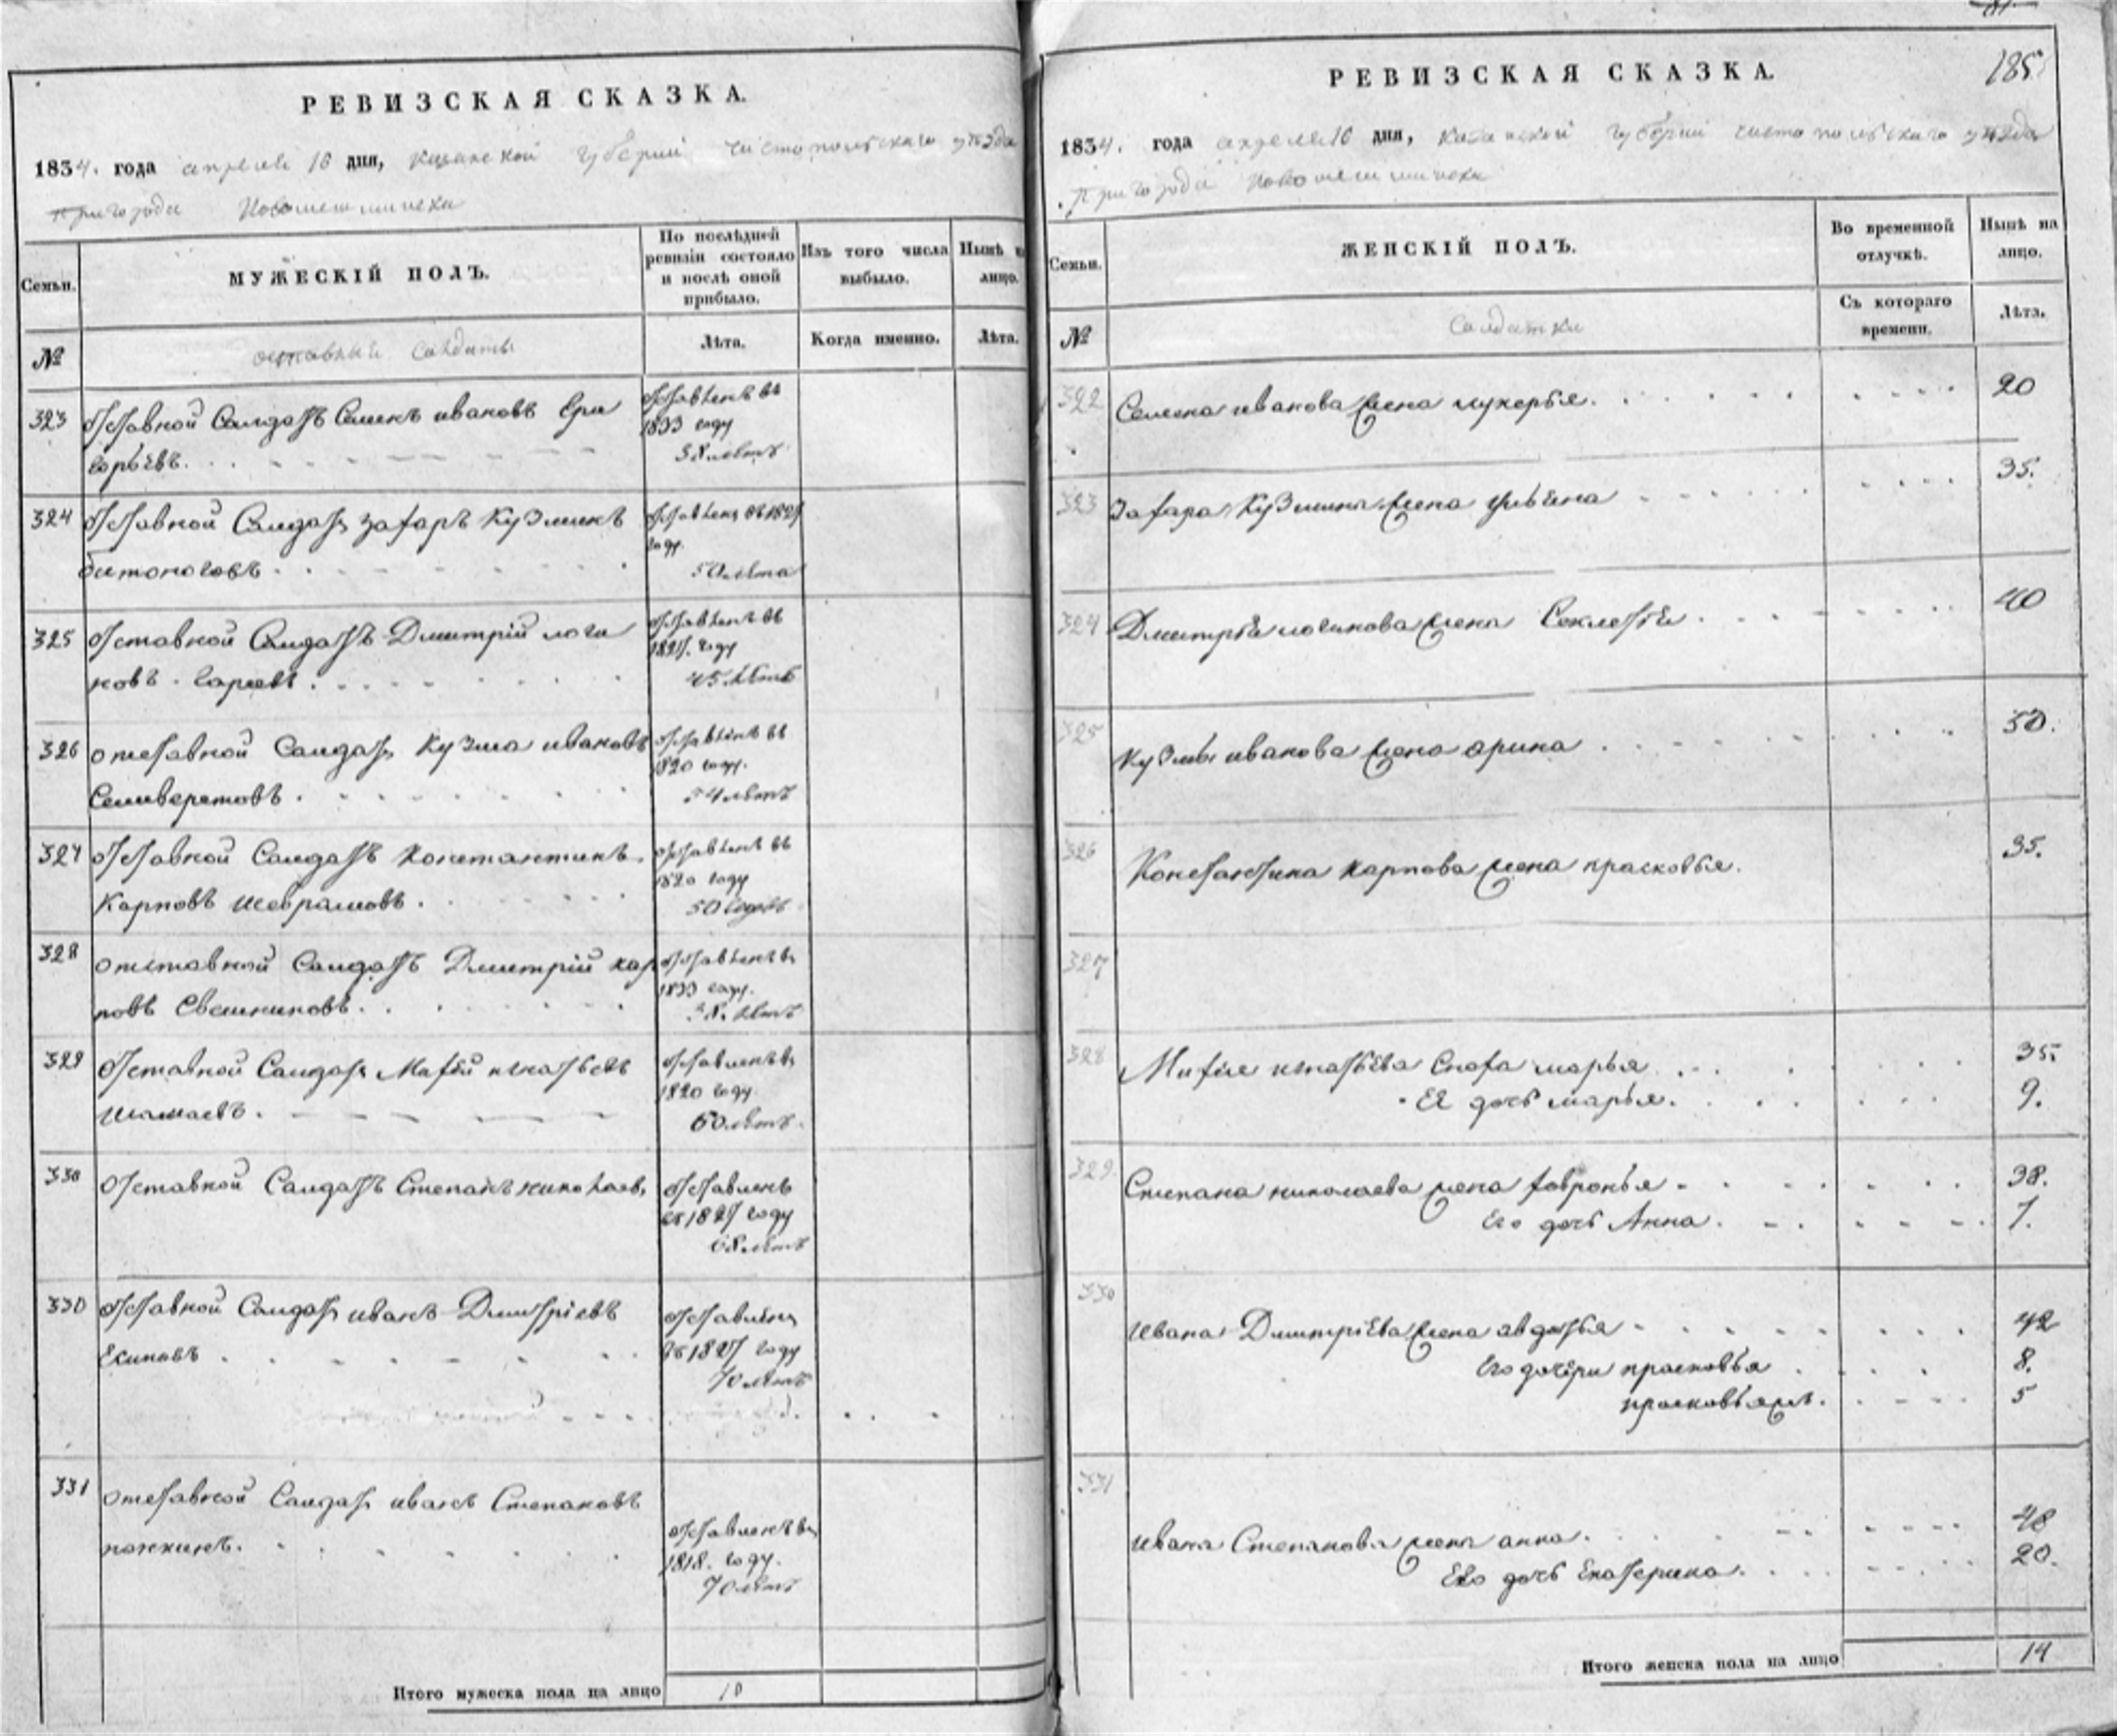 РЕВИЗСКАЯ СКАЗКА.
1834. года апреля 10 дня, казанской губернии чистопольскаго уѣзда
пригорода Новошешминска
Семьи.
МУЖЕСКІЙ ПОЛЪ.
По послѣдней ревизіи состояло и послѣ оной прибыло.
Изъ того числа выбыло.
Нынѣ лицо.
№
отставныи солдаты
Лѣта.
Когда именно.
Лѣта.
323 отставной Салдатъ Семенъ ивановъ Гри
горьевъ.
отставленъ въ
1833 году
38 летъ
324 отставной Салдатъ захаръ Кузминъ
битоноговъ
году
50 лета
325 отставной Салдатъ Дмитрій логи
новъ
отставленъ въ
году
45 летъ
326 отставной Салдатъ Кузма ивановъ
Селиверстовъ
отставленъ въ
1820 году
54 летъ
327 отставной Салдатъ Константинъ
Карповъ
отставленъ въ
1820 году
50 годовъ
328 отставной Салдатъ Дмитрій кар
повъ Свешниковъ
отставленъ въ
1833 году.
38. летъ
329 отставной Салдатъ Матвѣй игнатьевъ
Шамаевъ
отставленъ въ
1820 году
60 летъ
330 отставной Салдатъ Степанъ николаевъ
отставленъ
въ 1827 году
68 летъ
330 отставной Салдатъ иванъ Дмитріевъ
Екимовъ
отставленъ
въ 1827 году
70 летъ
331 отставной Салдатъ иванъ Степановъ
отставленъ въ
1818. году.
70 летъ
Итого мужеска пола на лицо 10
185
РЕВИЗСКАЯ СКАЗКА.
1834. года апреля 10 дня, казанской губернии чистопольскаго уѣзда
пригорода Новошешминска
Семьи.
ЖЕНСКІЙ ПОЛЪ.
Во временной отлучкѣ.
Нынѣ на лицо.
№
Салдатки
Съ котораго времени.
Лѣта.
322 Семена иванова жена лукерья. 20
323 Захара Кузмина жена ульяна 35.
324 Дмитрѣя логинова жена 40
325 Кузмы иванова жена арина 50.
326 Константина Карпова жена прасковья. 35.
327
328 Матвѣя игнатьева Сноха марья 35.
Её дочь марья. 9.
329 Степана николаева жена февронья 38.
Его дочь Анна. 7.
330 ивана Дмитріева жена авдотья 42
Его дочери прасковья 8.
прасковья же. 5
331 ивана Степанова жена анна. 48
Его дочь Екатерина. 20.
Итого женска пола на лицо 14